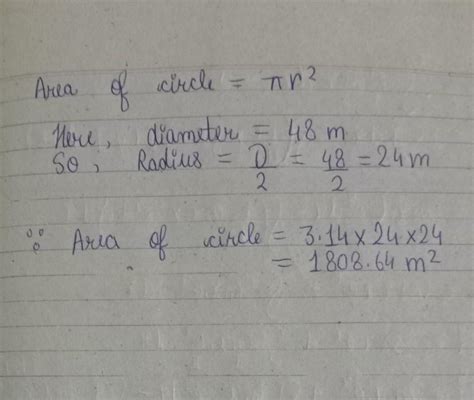 Area of circle = πr²
Here, diameter = 48 m
So, Radius = D/2 = 48/2 = 24 m
∴ Area of circle = 3.14 x 24 x 24
= 1808.64 m²